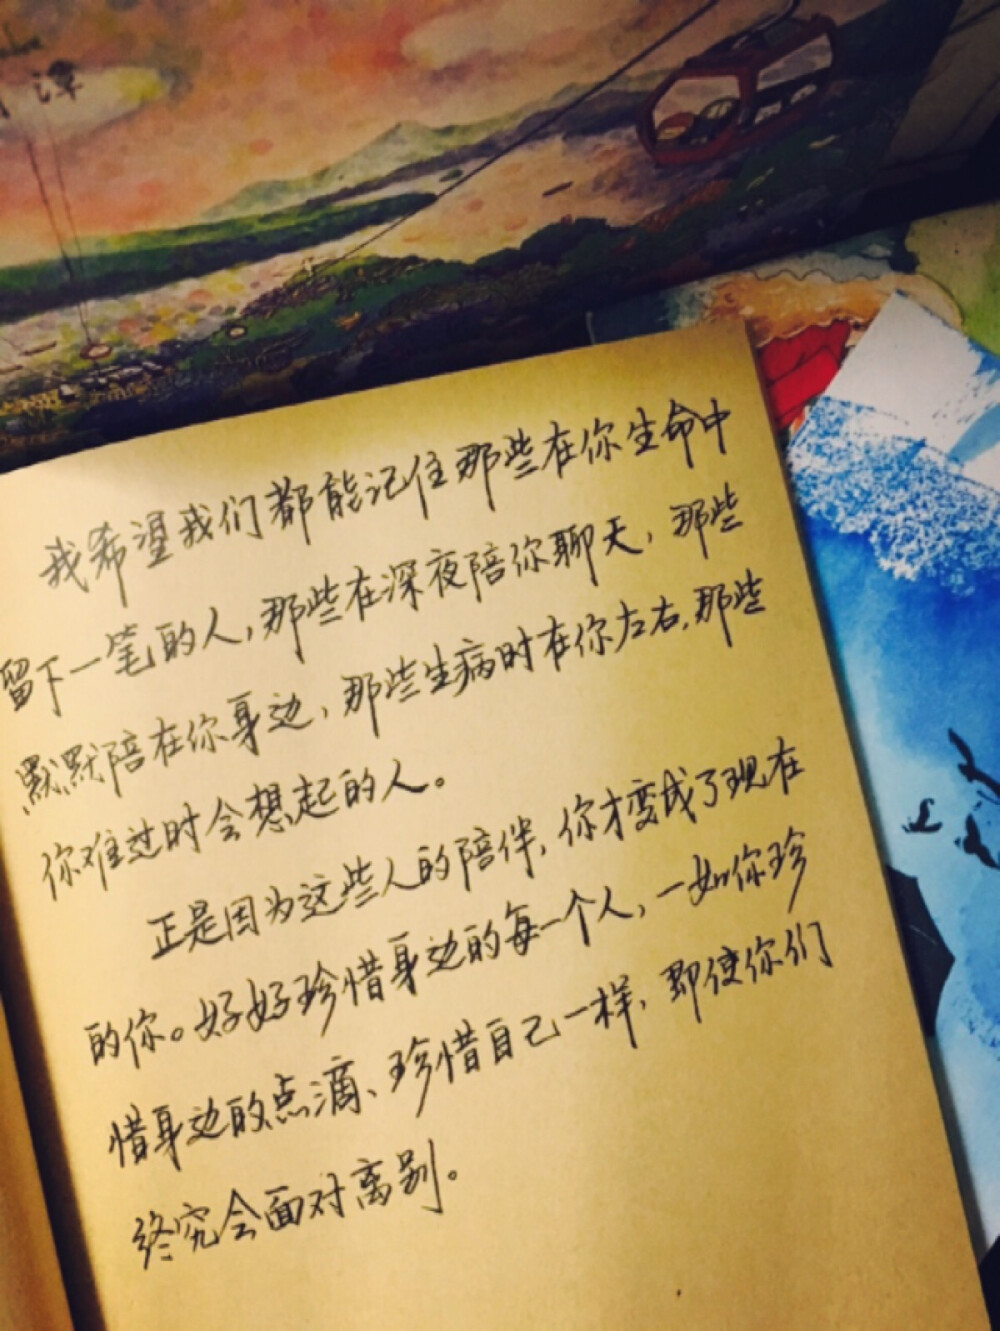 潭
我希望我们都能记住那些在你生命中
留下一笔的人,那些在深夜陪你聊天,那些
默默陪在你身边,那些生病时在你左右,那些
你难过时会想起的人。
正是因为这些人的陪伴,你才变成了现在
的你。好好珍惜身边的每一个人,一如你珍
惜身边的点滴、珍惜自己一样,即使你们
终究会面对离别。